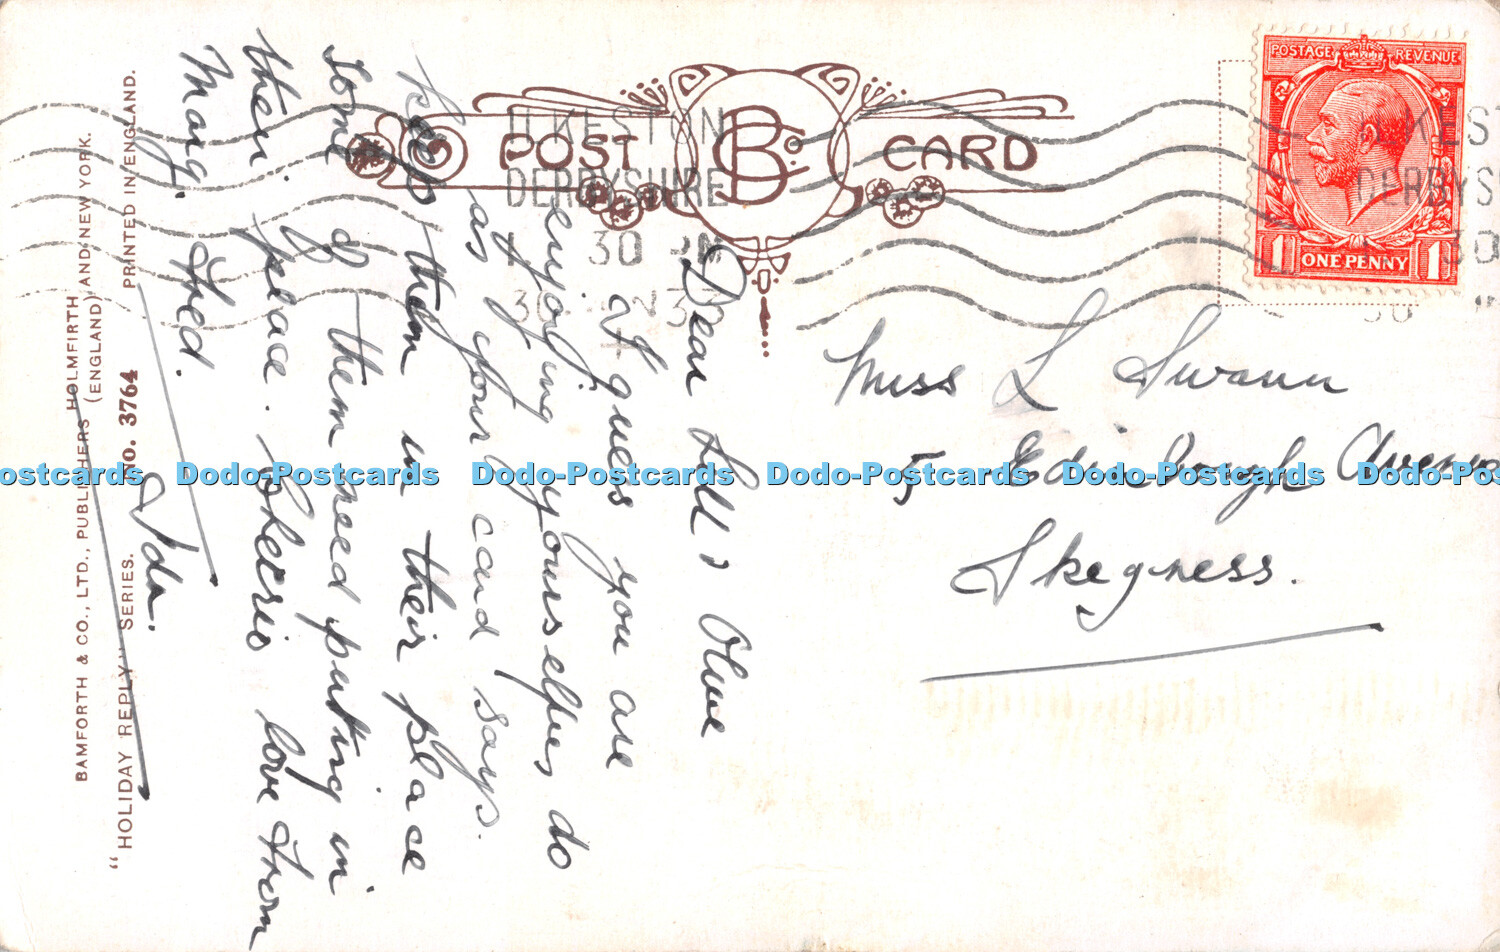 POST CARD
B Co.
ILKESTON
DERBYSHIRE
30 PM
30
POSTAGE REVENUE
ONE PENNY
1 1
Miss L Swann
5 Edinborough Avenue
Skegness.
Dear Lill & Olive
I guess you are
enjoying yourselves do
as your card says.
Keep them in their place
some of them need putting in
their place. Cheerio love from
Mary. Fred.
Ida.
BAMFORTH & CO., LTD., PUBLISHERS HOLMFIRTH
(ENGLAND) AND NEW YORK.
"HOLIDAY REPLY" SERIES. NO. 3764 PRINTED IN ENGLAND.
Dodo-Postcards Dodo-Postcards Dodo-Postcards Dodo-Postcards Dodo-Postcards Dodo-Postcards